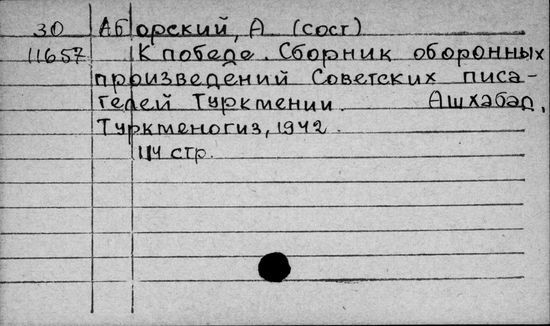 30 Аборский, А (сост)
11657 К победе. Сборник оборонных
произведений Советских писа-
телей Туркмении. Ашхабад,
Туркменогиз, 1942.
114 стр.